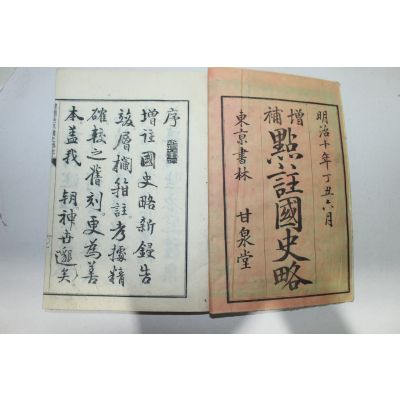 明治十年丁丑六月
增補
點註國史略
東京書林 甘泉堂
序
增註國史略新鐫告
竣層欄箱註考據精
確較之舊刻更為善
本蓋我 朝神世邈矣